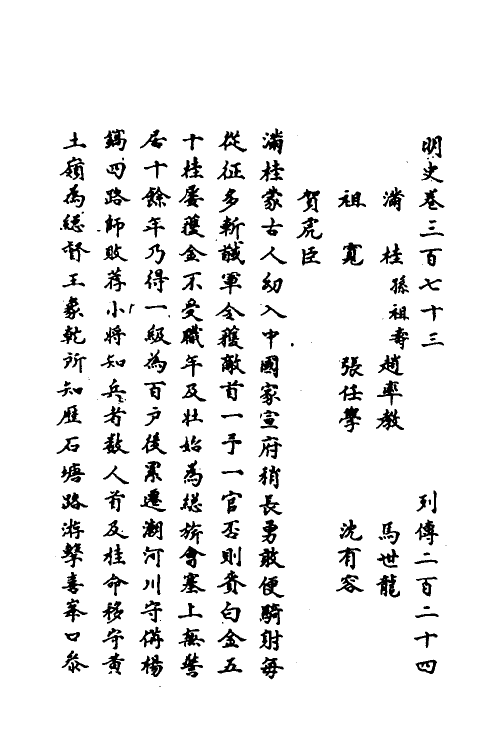 明史卷三百七十三 列傳二百二十四
滿桂 孫祖壽 趙率教 馬世龍
祖寬 張任學 沈有容
賀虎臣
滿桂蒙古人幼入中國家宣府稍長勇敢便騎射每
從征多斬馘軍令獲敵首一予一官否則賚白金五
十桂屢獲金不受職年及壯始為總旂會塞上無警
居十餘年乃得一級為百戶後累遷潮河川守備楊
鎬四路師敗荐小將知兵者數人首及桂命移守黃
土嶺為總督王象乾所知歷石塘路游擊喜峯口叅